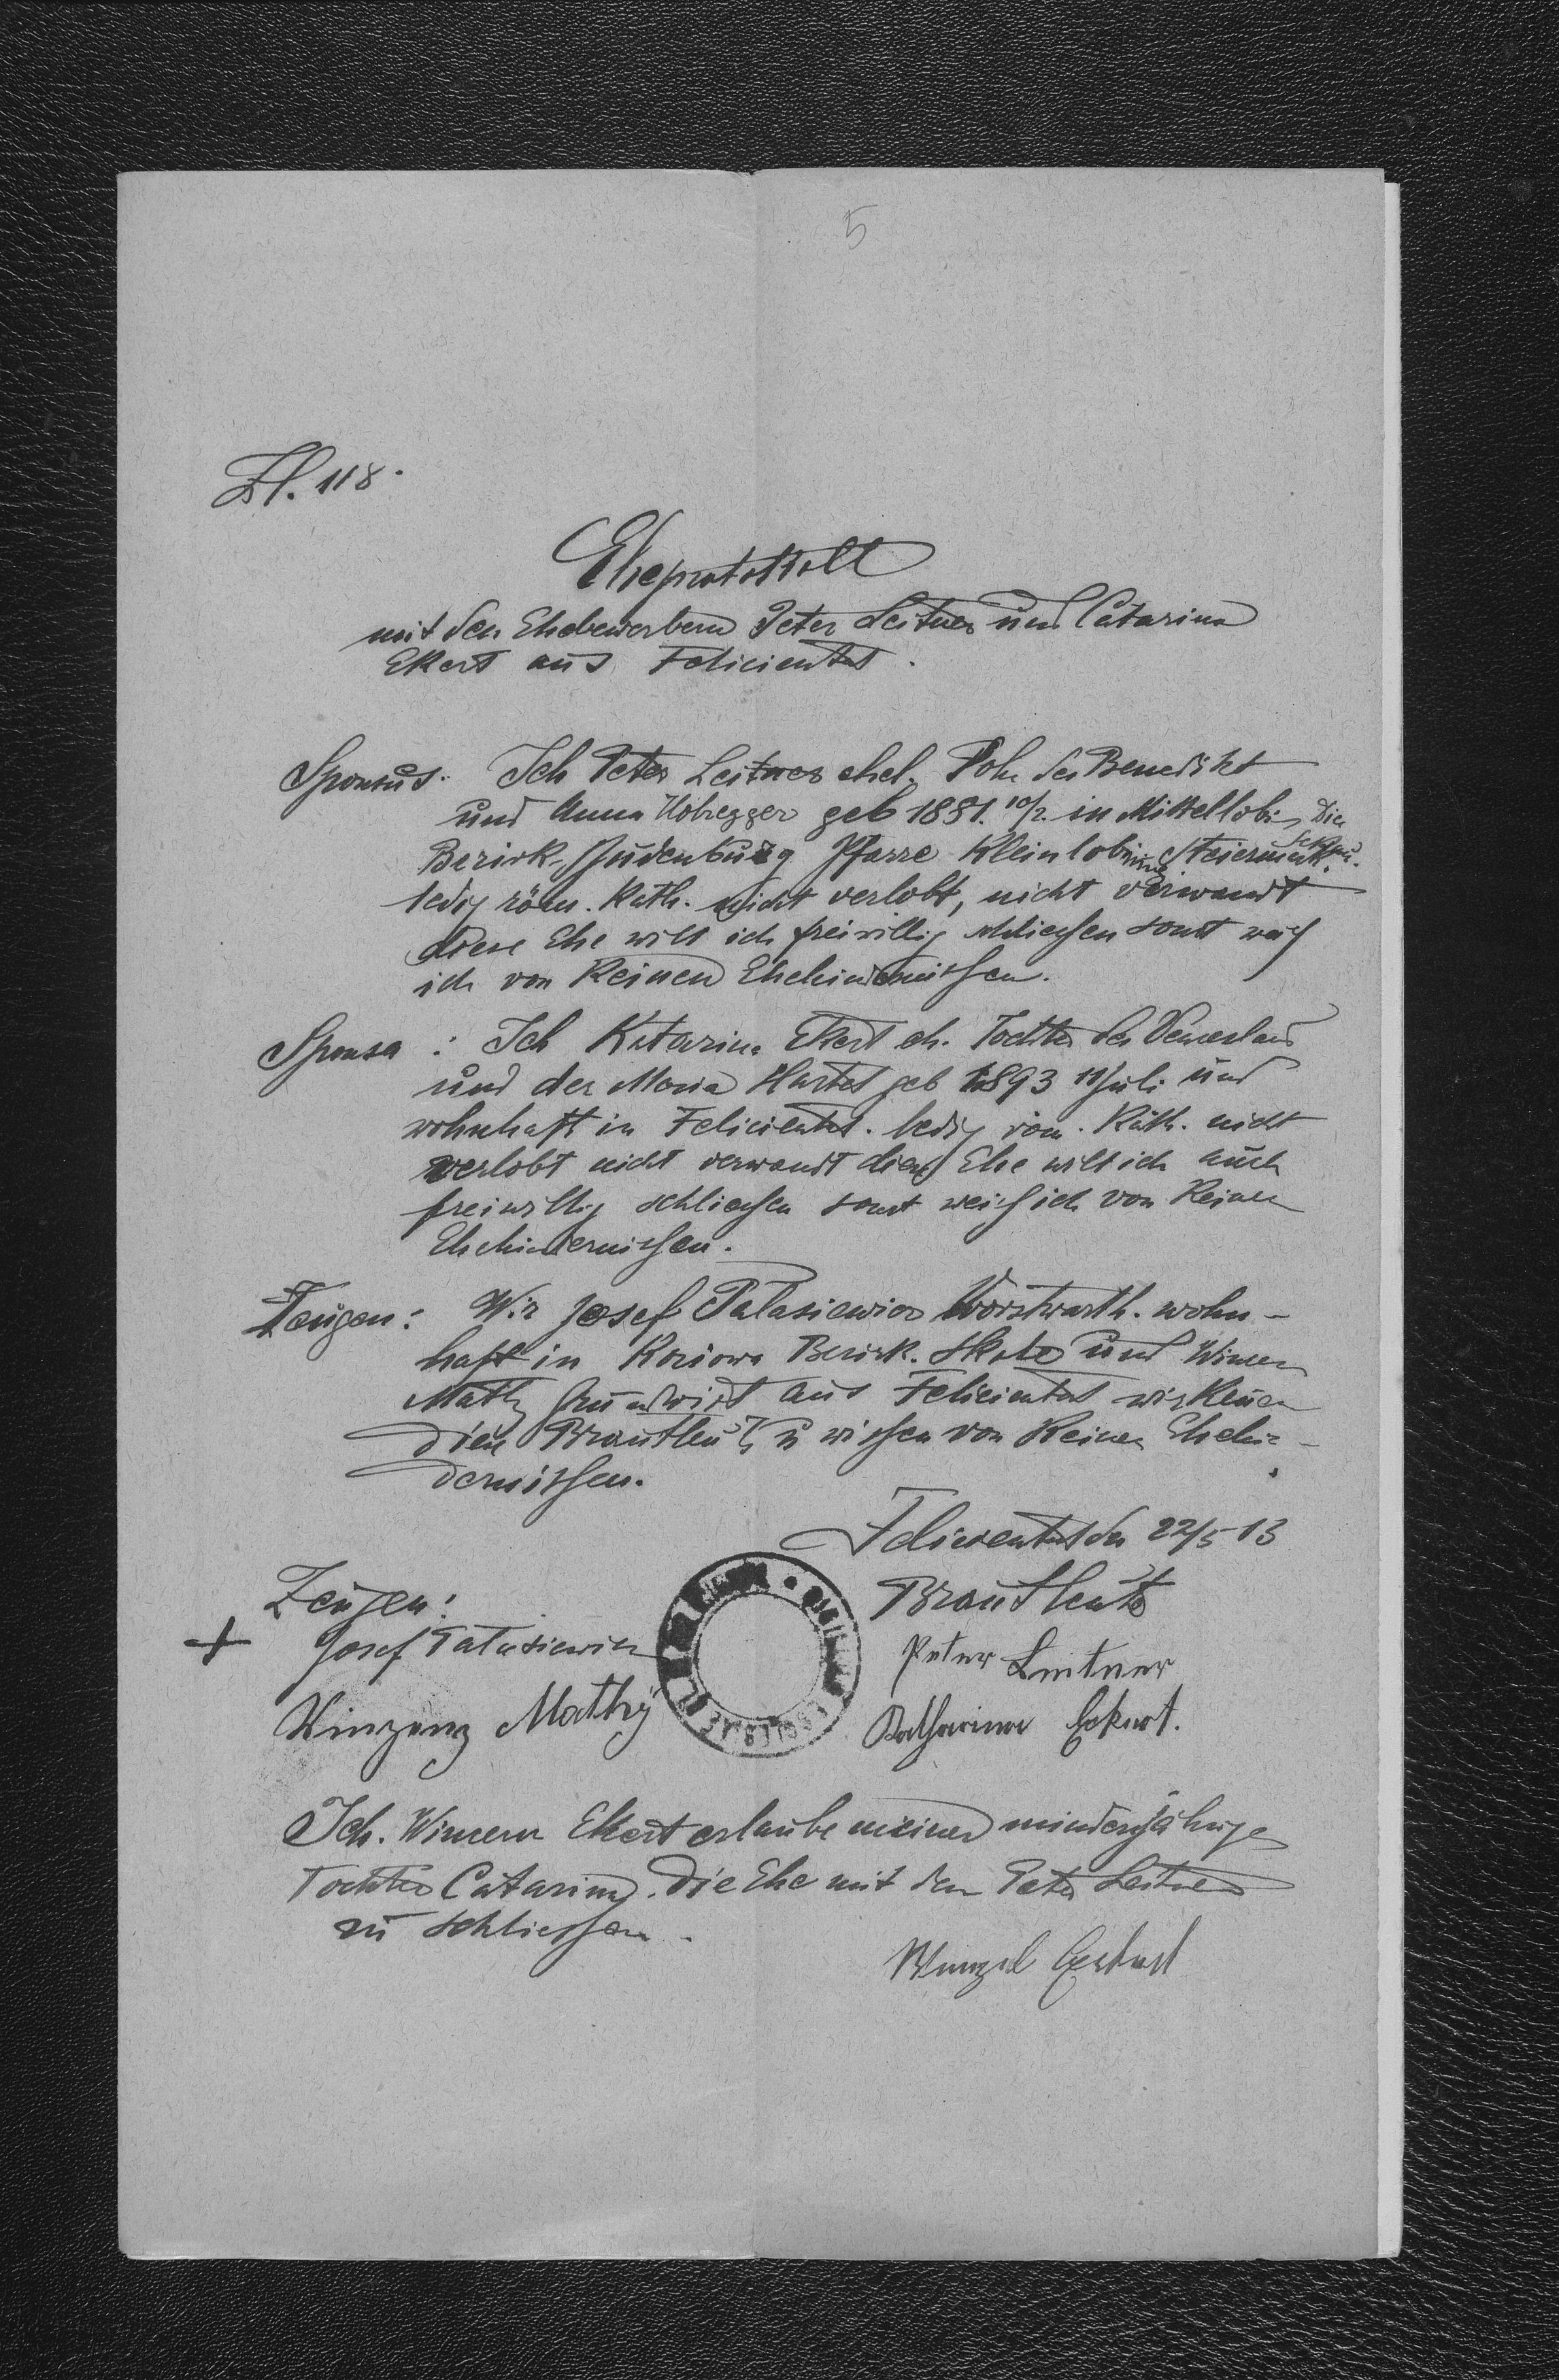 5
Zl. 118.
Eheprotokoll
mit den Ehebewerbern Peter Leitner und Catarina
Ekert aus Feliciental.
Sponsus: Ich Peter Leitner ehel. Sohn des Benedikt
und Anna Holzegger geb 1881. 10/2. in Mittellobing Die
Bezirk Judenburg Pfarre Kleinlobming Steiermark.
ledig röm. kath. nicht verlobt, nicht verwandt
diese Ehe will ich freiwillig schliessen sonst weiß
ich von keinen Ehehindernissen.
Sponsa : Ich Katarina Ekert eh. Tochter des Venceslaus
und der Maria Hartel geb 1893 11 Juli und
wohnhaft in Feliciental. ledig röm. kath. nicht
verlobt nicht verwandt diese Ehe will ich auch
freiwillig schliessen sonst weiß ich von keinen
Ehehindernissen.
Zeugen: Wir Josef Patasiewicz wohn-
haft in Koziowa Bezirk. Skole und Winzen
Mathy Grundwirt aus Feliciental wir kennen
diese Brautleute u wissen von keinen Ehehin-
dernissen.
Feliciental den 22/5 13
Zeugen: Brautleute
+ Josef Patasiewicz Peter Leitner
Winzenz Mathy Katharina Eckert.
Ich. Winzenz Ekert erlaube meiner minderjährige
Tochter Catarina. die Ehe mit dem Peter Leitner
zu schliessen.
Wenzel Eckert